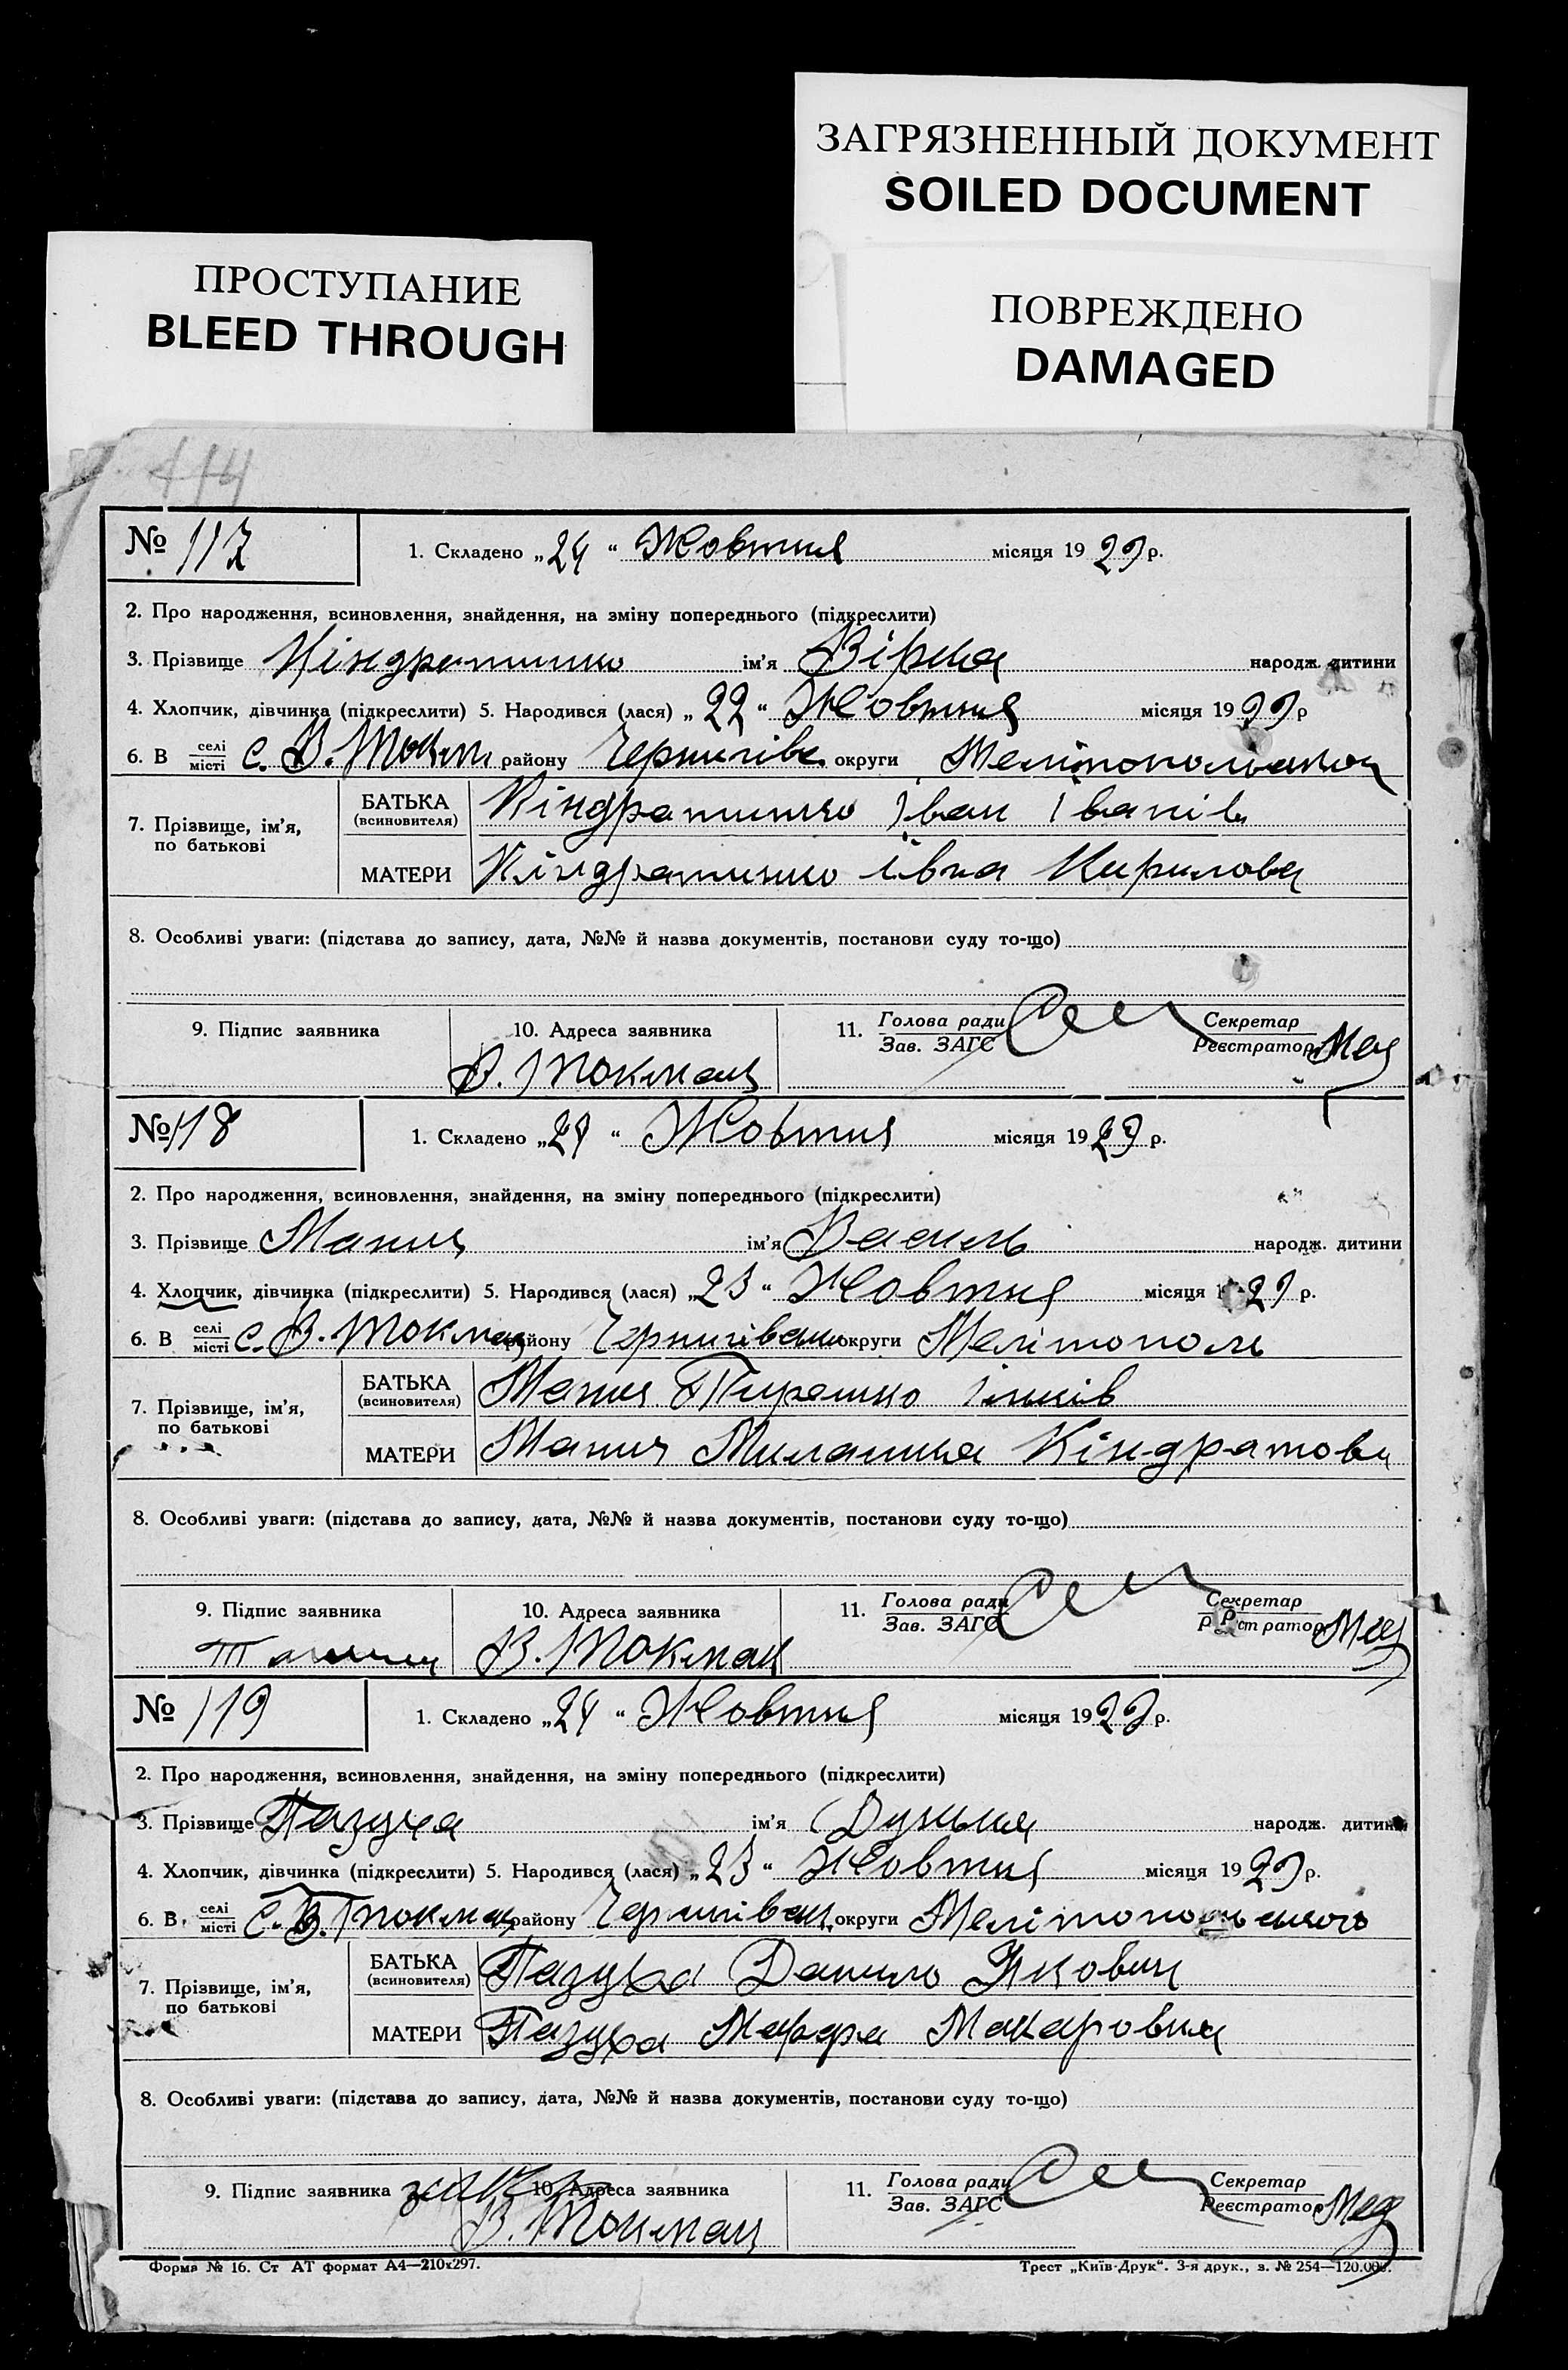 ЗАГРЯЗНЕННЫЙ ДОКУМЕНТ
SOILED DOCUMENT
ПРОСТУПАНИЕ
BLEED THROUGH
ПОВРЕЖДЕНО
DAMAGED
№ 117 1. Складено „24“ Жовтня місяця 1929 р.
2. Про народження, всиновлення, знайдення, на зміну попереднього (підкреслити)
3. Прізвище ім'я народж. дитини
4. Хлопчик, дівчинка (підкреслити) 5. Народився (лася) „22“ Жовтня місяця 1929 р
6. В селі місті С. В. Токм району Чернигівс округи
7. Прізвище, ім'я, по батькові
БАТЬКА (всиновителя) Кіндратенко Іван Іванів
МАТЕРИ Кіндратенко Івна Кирилова
8. Особливі уваги: (підстава до запису, дата, №№ й назва документів, постанови суду то-що)
9. Підпис заявника 10. Адреса заявника 11. Голова ради Зав. ЗАГС Секретар Реєстратор
В. Токмак
№ 118 1. Складено „24“ Жовтня місяця 1929 р.
2. Про народження, всиновлення, знайдення, на зміну попереднього (підкреслити)
3. Прізвище ім'я Василь народж. дитини
4. Хлопчик, дівчинка (підкреслити) 5. Народився (лася) „23“ Жовтня місяця 1929 р.
6. В селі місті С. В. Токмак району округи Мелітополь
7. Прізвище, ім'я, по батькові
БАТЬКА (всиновителя)
МАТЕРИ Кіндратова
8. Особливі уваги: (підстава до запису, дата, №№ й назва документів, постанови суду то-що)
9. Підпис заявника 10. Адреса заявника 11. Голова ради Зав. ЗАГС Секретар
В. Токмак
№ 119 1. Складено „24“ Жовтня місяця 1929 р.
2. Про народження, всиновлення, знайдення, на зміну попереднього (підкреслити)
3. Прізвище Пазуха ім'я народж. дитини
4. Хлопчик, дівчинка (підкреслити) 5. Народився (лася) „23“ Жовтня місяця 1929 р.
6. В селі місті С. В. Токмак району округи Мелітопольського
7. Прізвище, ім'я, по батькові
БАТЬКА (всиновителя) Пазуха Данило Якович
МАТЕРИ Пазуха Марфа Макаровна
8. Особливі уваги: (підстава до запису, дата, №№ й назва документів, постанови суду то-що)
9. Підпис заявника 10. Адреса заявника 11. Голова ради Зав. ЗАГС Секретар Реєстратор
В. Токмак
Форма № 16. Ст АТ формат А4—210х297. Трест „Київ-Друк“. 3-я друк., з. № 254—120.000.